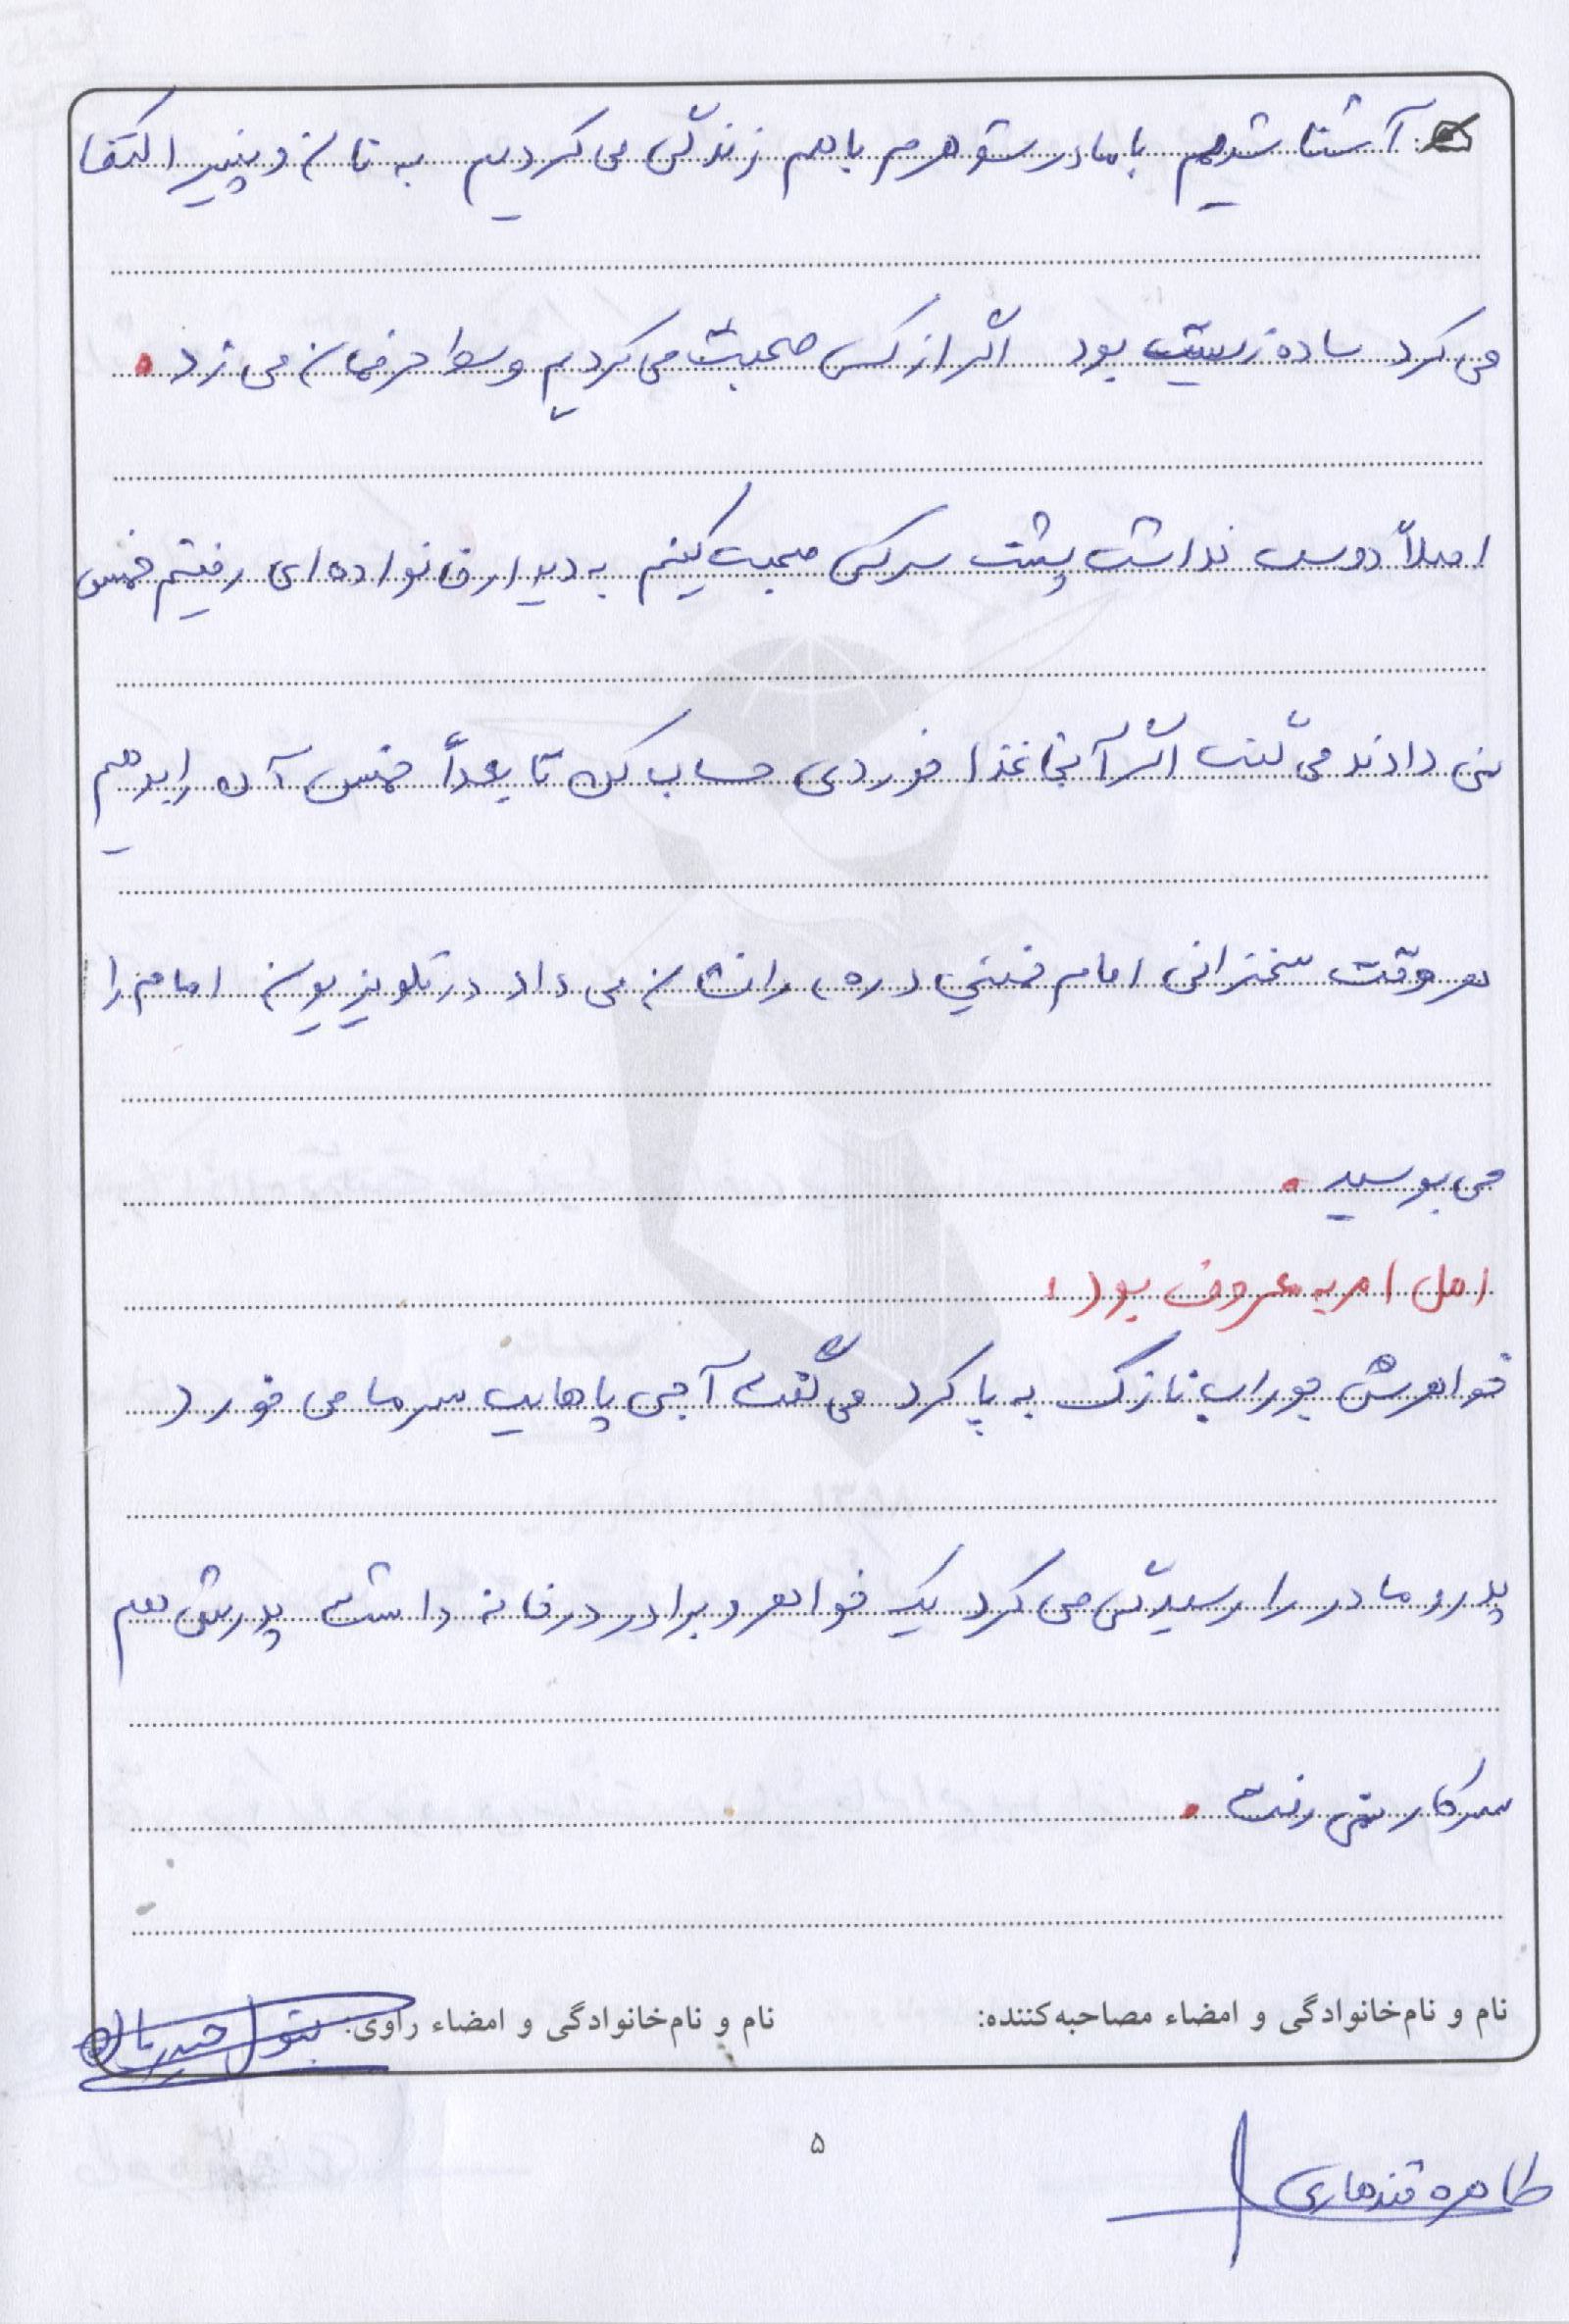 آشنا شدیم با مادر شوهرم باهم زندگی می کردیم به نان و پنیر اکتفا
می کرد ساده زیست بود اگر از کسی صحبت می کردیم وسط حرفمان می زد.
اصلاً دوست نداشت پشت سر کسی صحبت کنیم به دیدار خانواده ای رفتیم خمس
نمی دادند می گفت اگر آنجا غذا خوردی حساب کن تا بعداً خمس آن را بدهیم
هر وقت سخنرانی امام خمینی (ره) را نشان می داد در تلویزیون امام را
می بوسید.
اهل امر به معروف بود.
خواهرش جوراب نازک به پا کرد می گفت آجی پاهایت سرما می خورد
پدر و مادر را رسیدگی می کرد یک خواهر و برادر در خانه داشت پدرش هم
سرکار نمی رفت.
نام و نام‌خانوادگی و امضاء مصاحبه‌کننده: نام و نام‌خانوادگی و امضاء راوی: بتول حیدریان
۵
طاهره قندهاری